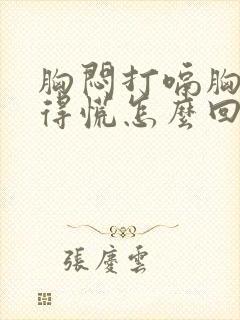 胸悶打嗝胸
得慌怎麼回
張慶雲